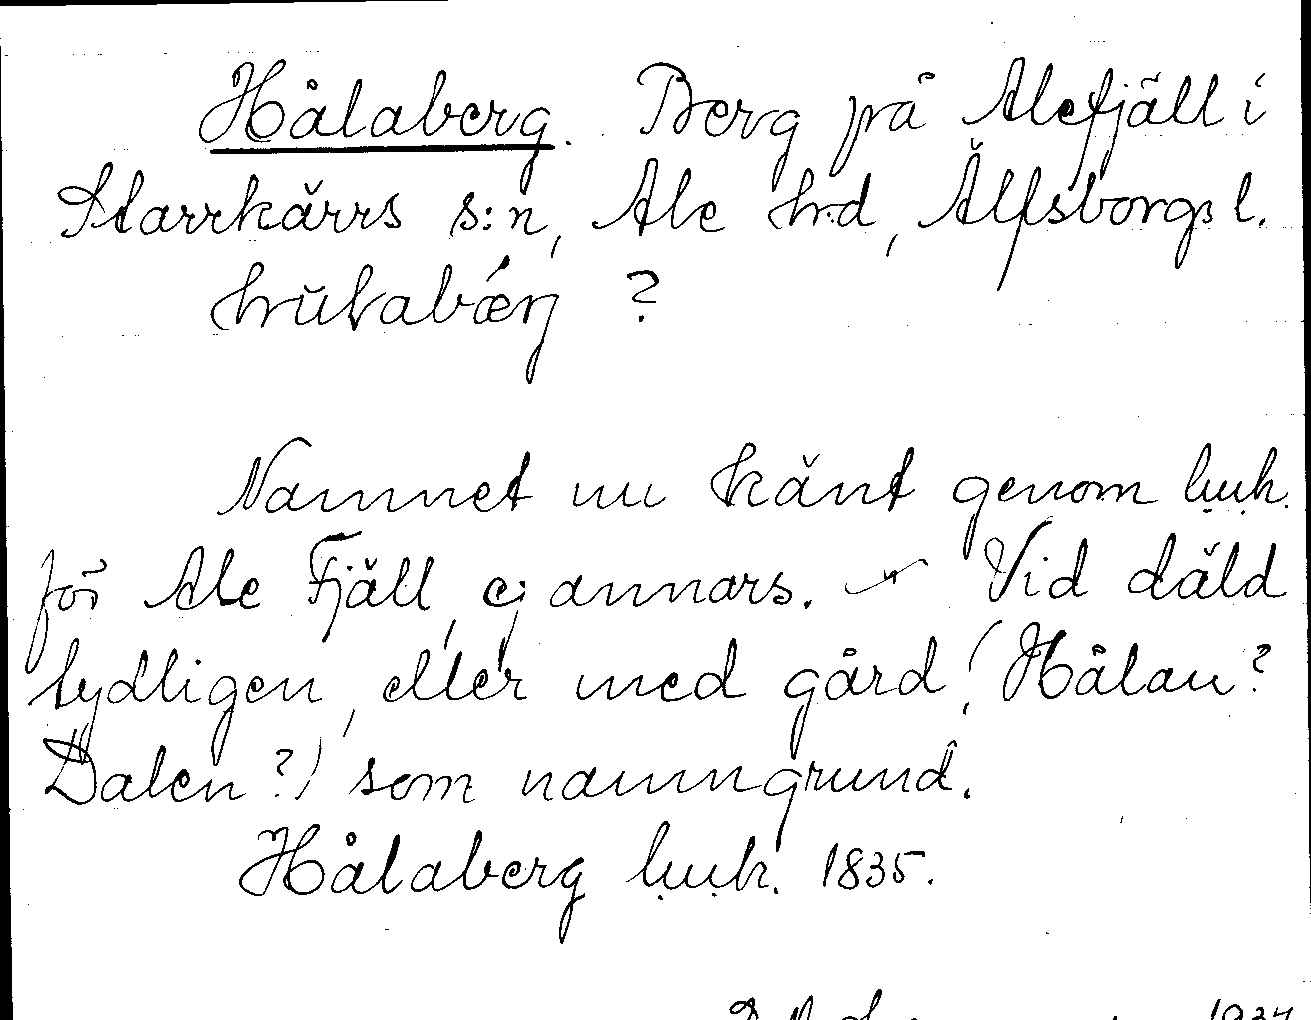 Hålaberg. Berg på Alefjäll i
Starrkärrs s:n, Ale hrd, Älfsborgs l.
?
Namnet nu känt genom
för Ale Fjäll, ej annars. - Vid däld
tydligen, eller med gård (Hålan?
Dalen?) som namngrund.
Hålaberg 1835.